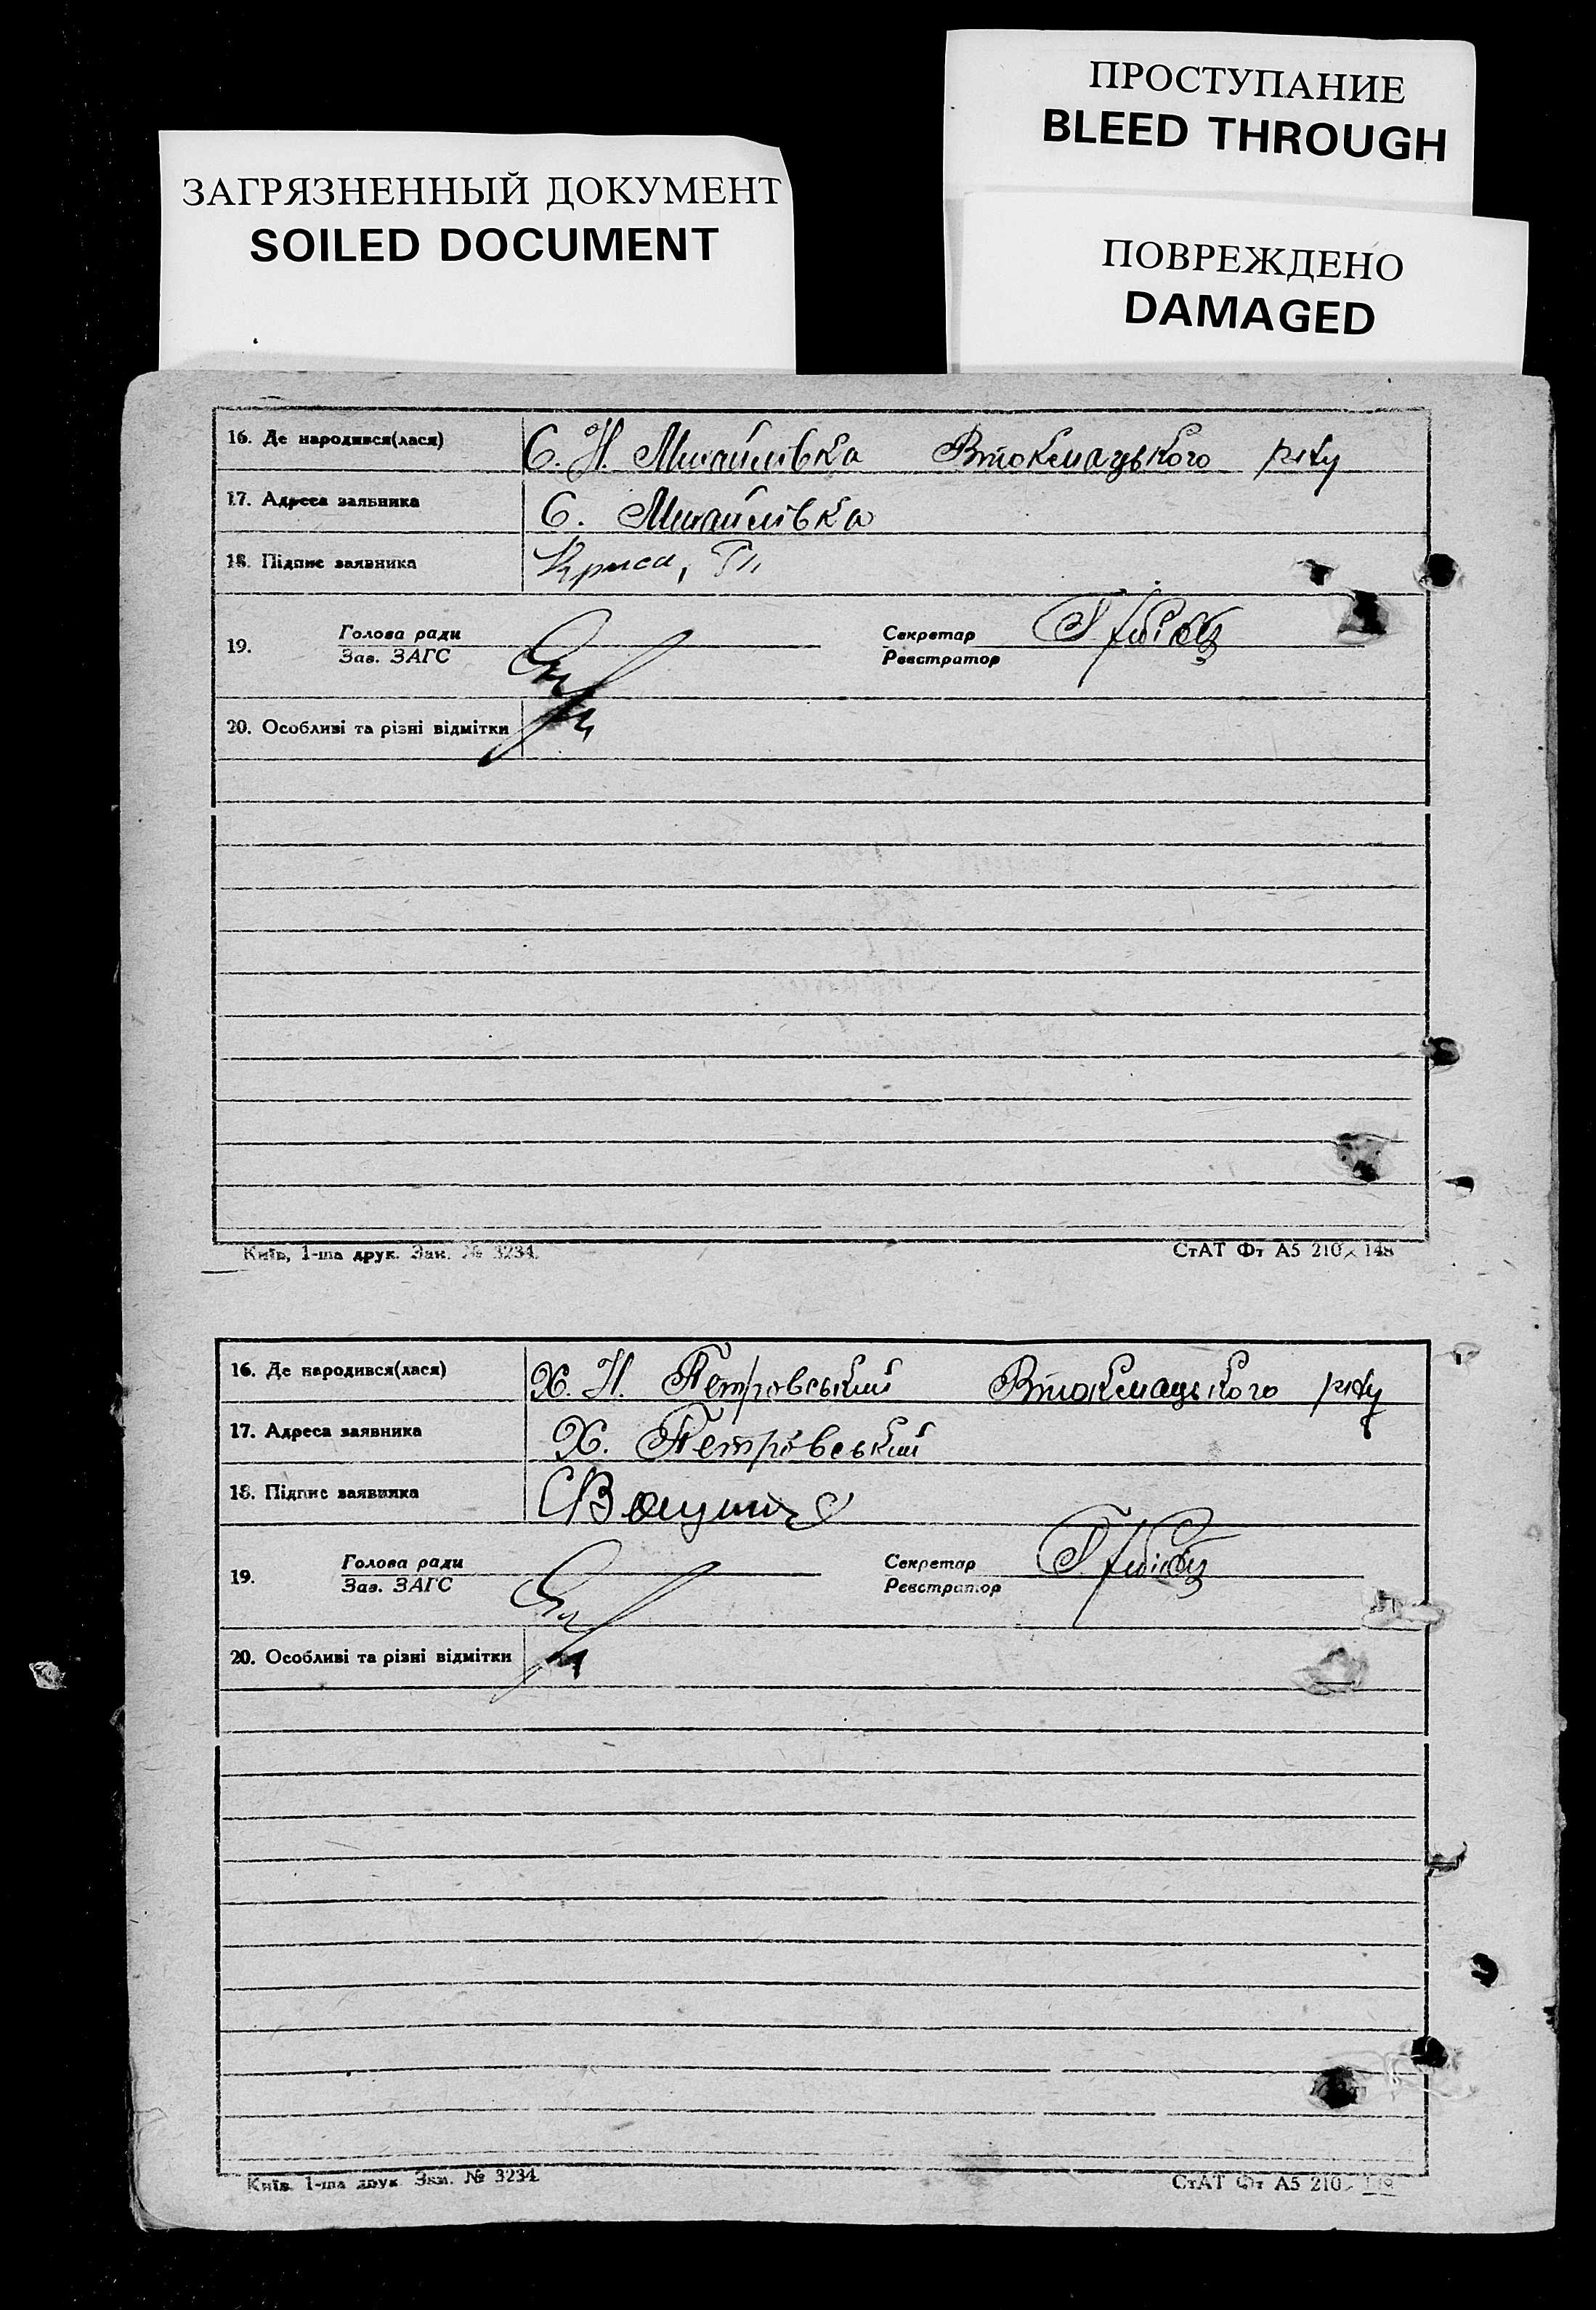 ПРОСТУПАНИЕ
BLEED THROUGH
ЗАГРЯЗНЕННЫЙ ДОКУМЕНТ
SOILED DOCUMENT
ПОВРЕЖДЕНО
DAMAGED
16. Де народився(лася) С. Н. Михайлівка Втокмацького р-ну
17. Адреса заявника С. Михайлівка
18. Підпис заявника
19. Голова ради Секретар
Зав. ЗАГС Реєстратор
20. Особливі та різні відмітки
Київ, 1-ша друк. Зам. № 3234. СтАТ Фт А5 210×148
16. Де народився(лася) Х. Н. Петровський Втокмацького р-ну
17. Адреса заявника Х. Петровський
18. Підпис заявника
19. Голова ради Секретар
Зав. ЗАГС Реєстратор
20. Особливі та різні відмітки
Київ. 1-ша друк. Зам. № 3234. СтАТ Фт А5 210×148